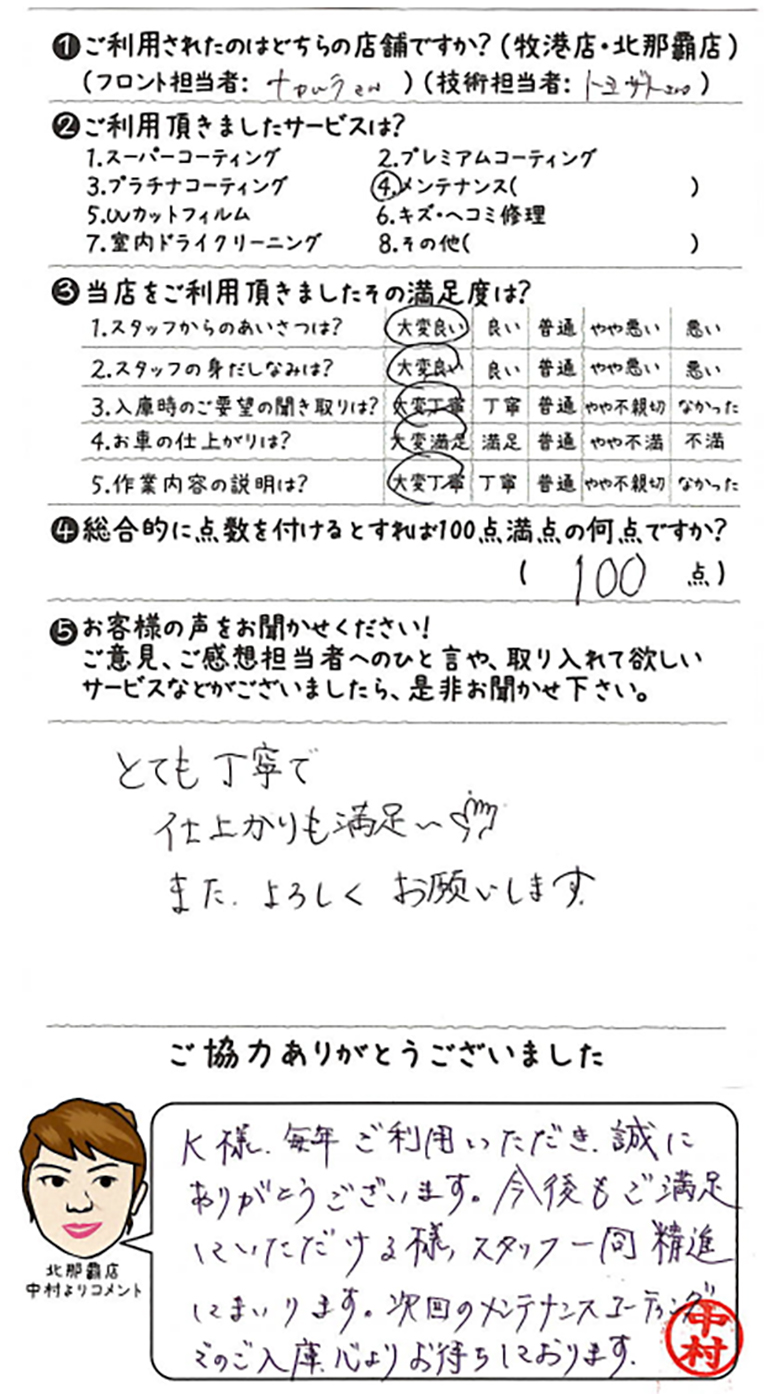 ❶ご利用されたのはどちらの店舗ですか?(牧港店・北那覇店)
(フロント担当者: ナカムラさん )(技術担当者: トヨザトさん )
❷ご利用頂きましたサービスは?
1.スーパーコーティング 2.プレミアムコーティング
3.プラチナコーティング 4.メンテナンス( )
5.UVカットフィルム 6.キズ・ヘコミ修理
7.室内ドライクリーニング 8.その他( )
❸当店をご利用頂きましたその満足度は?
1.スタッフからのあいさつは? 大変良い 良い 普通 やや悪い 悪い
2.スタッフの身だしなみは? 大変良い 良い 普通 やや悪い 悪い
3.入庫時のご要望の聞き取りは? 大変丁寧 丁寧 普通 やや不親切 なかった
4.お車の仕上がりは? 大変満足 満足 普通 やや不満 不満
5.作業内容の説明は? 大変丁寧 丁寧 普通 やや不親切 なかった
❹総合的に点数を付けるとすれば100点満点の何点ですか?
( 100 点)
❺お客様の声をお聞かせください!
ご意見、ご感想担当者へのひと言や、取り入れて欲しい
サービスなどがございましたら、是非お聞かせ下さい。
とても丁寧で
仕上がりも満足〜
また、よろしくお願いします。
ご協力ありがとうございました
K様、毎年ご利用いただき、誠に
ありがとうございます。今後もご満足
していただける様、スタッフ一同精進
してまいります。次回のメンテナンスコーティング
でのご入庫、心よりお待ちしております。
中村
北那覇店
中村よりコメント